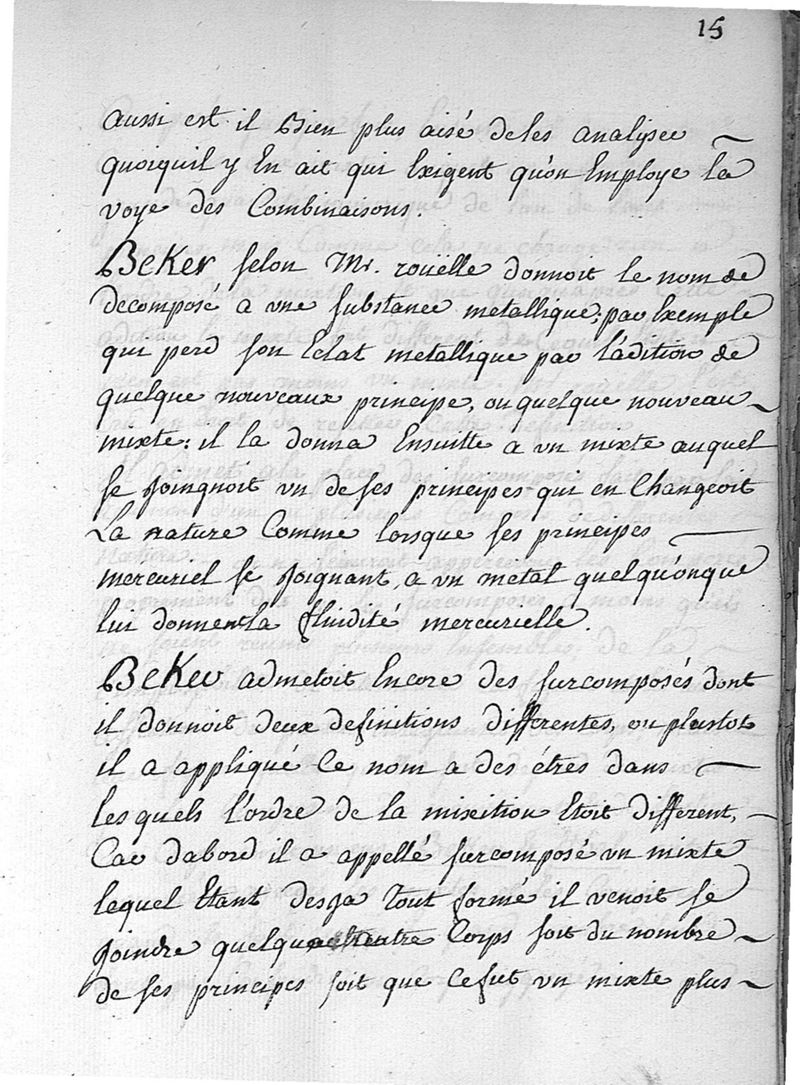 15
aussi est il Bien plus aisé deles analyser
quoiquil y En ait qui Exigent qu'on Employe la
voye des Combinaisons.
Beker selon Mr. rouëlle donnoit le nom de
decomposé a vne substance metallique; par Exemple
qui perd son Eclat metallique par l'adition de
quelque nouveaux principe, ou quelque nouveau
mixte: il la donna Ensuitte a vn mixte auquel
se Joingnoit vn de ses principes qui en Changeoit
La nature Comme lorsque ses principes
mercuriel se Joignant a vn metal quelqu'onque
lui donnent la fluidité mercurielle.
Beker admetoit Encore des surcomposés dont
il donnoit deux definitions differentes, ou plustot
il a appliqué Ce nom a des étres dans
les quels l'ordre de la mixition Etoit different,
Car dabord il a appellé surcomposé vn mixte
lequel Etant desja Tout formé il venoit se
Joindre quelque autre Corps soit du nombre
de ses principes soit que Cefut vn mixte plus